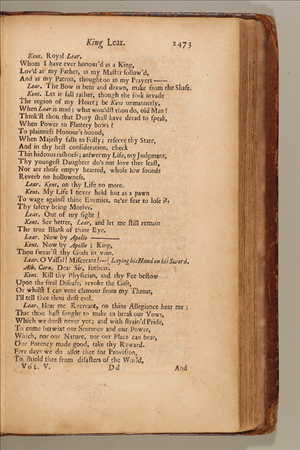 King Lear. 2475
Kent. Royal Lear,
Whom I have ever honour'd as a King,
Lov'd as my Father, as my Master follow'd,
And as my Patron, thought on in my Prayers——
Lear. The Bow is bent and drawn, make from the Shaft.
Kent. Let it fall rather, though the fork invade
The region of my Heart; be Kent unmannerly,
When Lear is mad; what wouldst thou do, old Man?
Think'st thou that Duty shall have dread to speak,
When Power to Flattery bows?
To plainness Honour's bound,
When Majesty falls to Folly; reserve thy State,
And in thy best consideration, check
This hideous rashness; answer my Life, my Judgment,
Thy youngest Daughter do's not love thee least,
Nor are those empty hearted, whose low sounds
Reverb no hollowness.
Lear. Kent, on thy Life no more.
Kent. My Life I never held but as a pawn
To wage against thine Enemies, ne'er fear to lose it,
Thy safety being Motive.
Lear. Out of my sight!
Kent. See better, Lear, and let me still remain
The true Blank of thine Eye.
Lear. Now by Apollo——
Kent. Now by Apollo; King,
Thou swear'st thy Gods in vain.
Lear. O Vassal! Miscreant!—[Laying his Hand on his Sword.
Alb. Corn. Dear Sir, forbear.
Kent. Kill thy Physician, and thy Fee bestow
Upon the foul Disease, revoke thy Gift,
Or whilst I can vent clamour from my Throat,
I'll tell thee thou dost evil.
Lear. Hear me Recreant, on thine Allegiance hear me;
That thou hast sought to make us break our Vows,
Which we durst never yet; and with strain'd Pride,
To come betwixt our Sentence and our Power,
Which, nor our Nature, nor our Place can bear,
Our Potency made good, take thy Reward.
Five days we do allot thee for Provision,
To shield thee from disasters of the World,
VOL. V. D d And